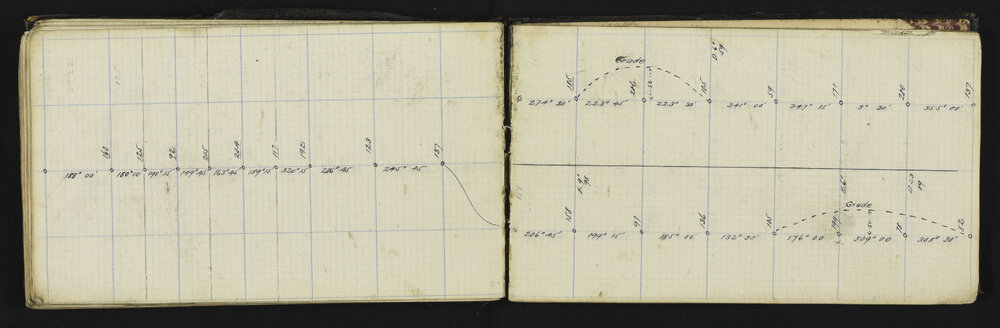 160 125 92 205 204 117 192 123 137
188° 00' 180° 00' 198° 15' 149° 45' 163° 45' 189° 15' 320° 15' 286° 45' 245° 45'
Grade
105 206 -50- 105 59 171 200 137
274° 30' 223° 45' 223° 30' 341° 00' 347° 15' 3° 30' 355° 00'
Grade
158 97 136 105 199 -50- 78 152
206° 45' 199° 15' 185° 00' 182° 30' 176° 00' 309° 00' 305° 30'